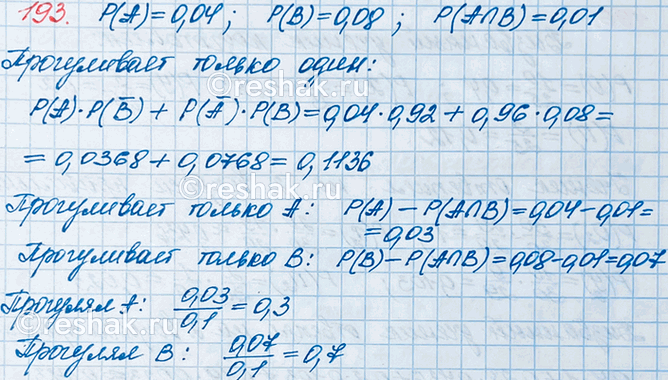 193. P(A)=0,04; P(B)=0,08; P(A∩B)=0,01
Прогуливает только один:
P(A)·P(B̄) + P(Ā)·P(B)=0,04·0,92+0,96·0,08=
=0,0368+0,0768=0,1136
Прогуливает только A: P(A)-P(A∩B)=0,04-0,01=
=0,03
Прогуливает только B: P(B)-P(A∩B)=0,08-0,01=0,07
Прогулял A: 0,03/0,1=0,3
Прогулял B: 0,07/0,1=0,7
reshak.ru
reshak.ru
reshak.ru